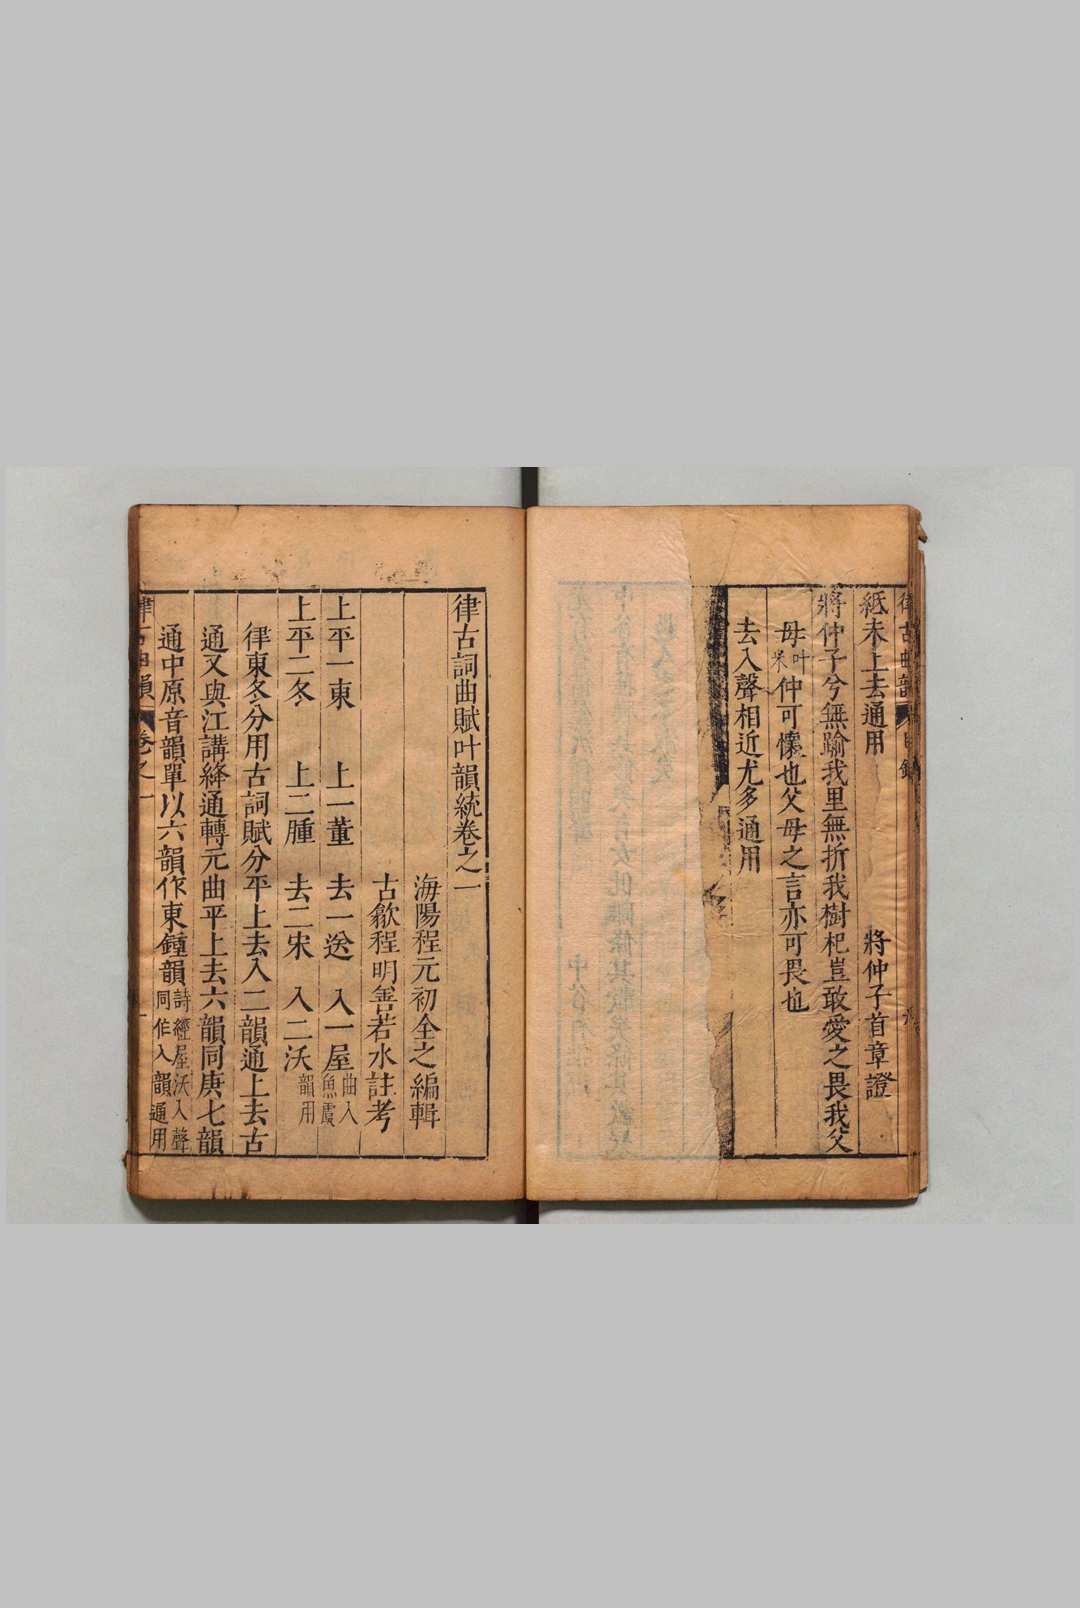 紙未上去通用　將仲子首章證
將仲子兮無踰我里無折我樹杞豈敢愛之畏我父
母叶米仲可懷也父母之言亦可畏也
去入聲相近尤多通用
律古詞曲賦叶韻統卷之一
海陽程元初全之編輯
古歙程明善若水註考
上平一東　上一董　去一送　入一屋曲入魚虞
上平二冬　上二腫　去二宋　入二沃韻用
律東冬分用古詞賦分平上去入二韻通上去古
通又與江講絳通轉元曲平上去六韻同庚七韻
通中原音韻單以六韻作東鍾韻詩經屋沃入聲同作入韻通用
卷之一